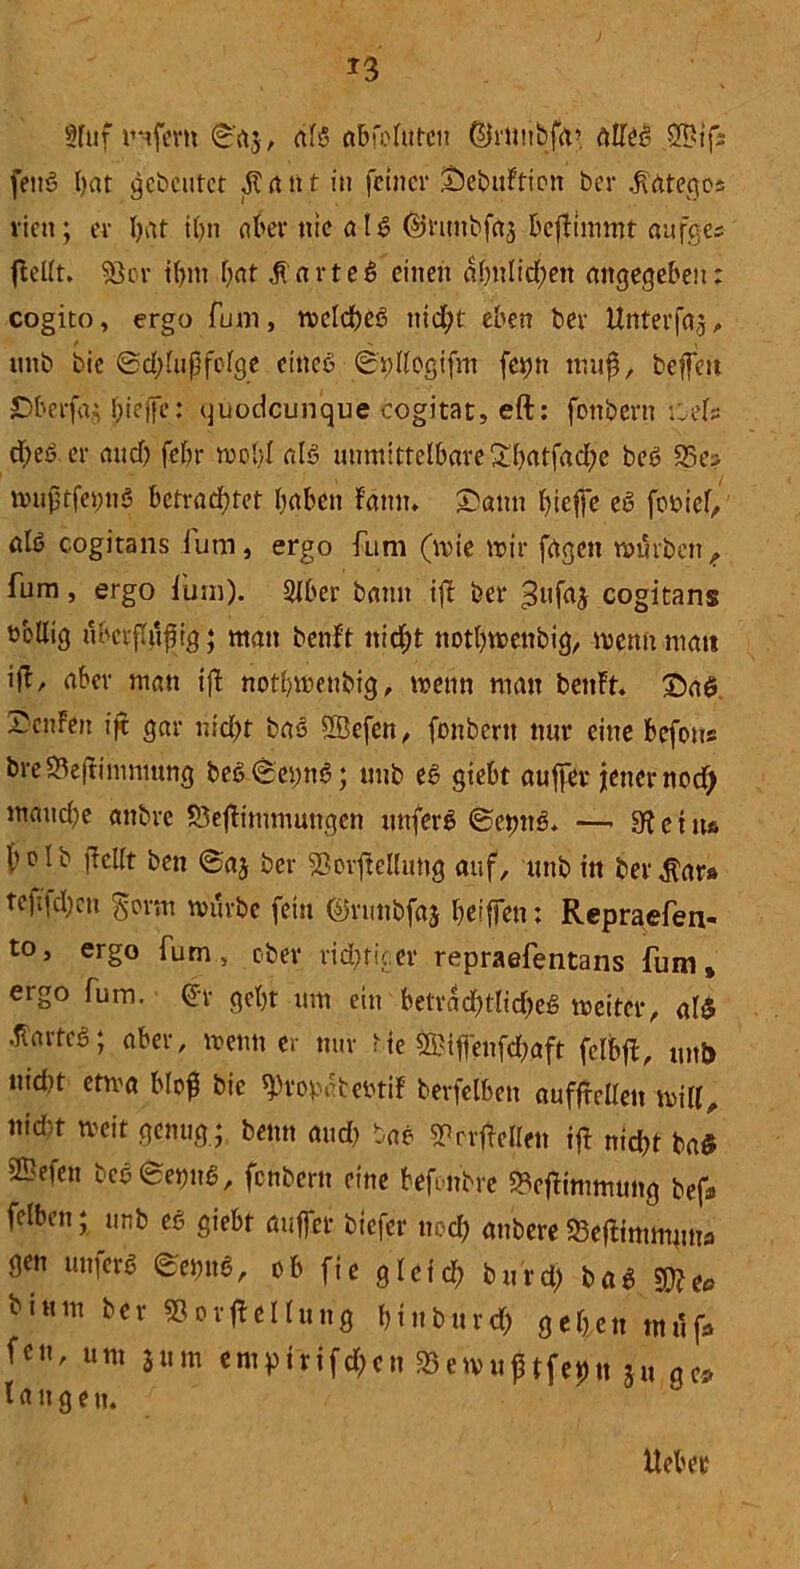 13
Auf unsern Saz, als absoluten Grundsaz alles Wis-
sens hat gedeutet Kant in seiner Deduktion der Katego-
rien; er hat ihn aber nie als Grundsaz bestimmt aufge-
stellt. Vor ihm hat Kartes einen ähnlichen angegeben:
cogito, ergo sum, welches nicht eben der Untersaz,
und die Schlußfolge eines Syllogism seyn muß, dessen
Obersaz hiesse: quodcunque cogitat, est: sondern wel-
ches er auch sehr wohl als unmittelbare Thatsache des Be-
wußtseyns betrachtet haben kann. Dann hiesse es soviel,
als cogitans sum, ergo sum (wie wir sagen würden,
sum, ergo sum). Aber dann ist der Zusaz cogitans
völlig überflüßig; man denkt nicht nothwendig, wenn man
ist, aber man ist nothwendig, wenn man denkt. Das
Denken ist gar nicht das Wesen, sondern nur eine beson-
dre Bestimmung des Seyns; und es giebt ausser jener noch
manche andre Bestimmungen unsers Seyns. — Rein-
hold stellt den Saz der Vorstellung auf, und in der Kar-
tesischen Form würde sein Grundsaz heissen: Repraesen-
to, ergo sum, oder richtiger repraesentans sum,
ergo sum. Er geht um ein beträchtliches weiter, als
Kartes; aber, wenn er nur die Wissenschaft selbst, und
nicht etwa bloß die Propädevtik derselben aufstellen will,
nicht weit genug; denn auch das Vorstellen ist nicht das
Wesen des Seyns, sondern eine besondre Bestimmung des-
selben; und es giebt ausser dieser noch andere Bestimmun-
gen unsers Seyns, ob sie gleich durch das Me-
dium der Vorstellung hindurch gehen müs-
sen, um zum empirischen Bewußtseyn zu ge-
langen.
Ueber